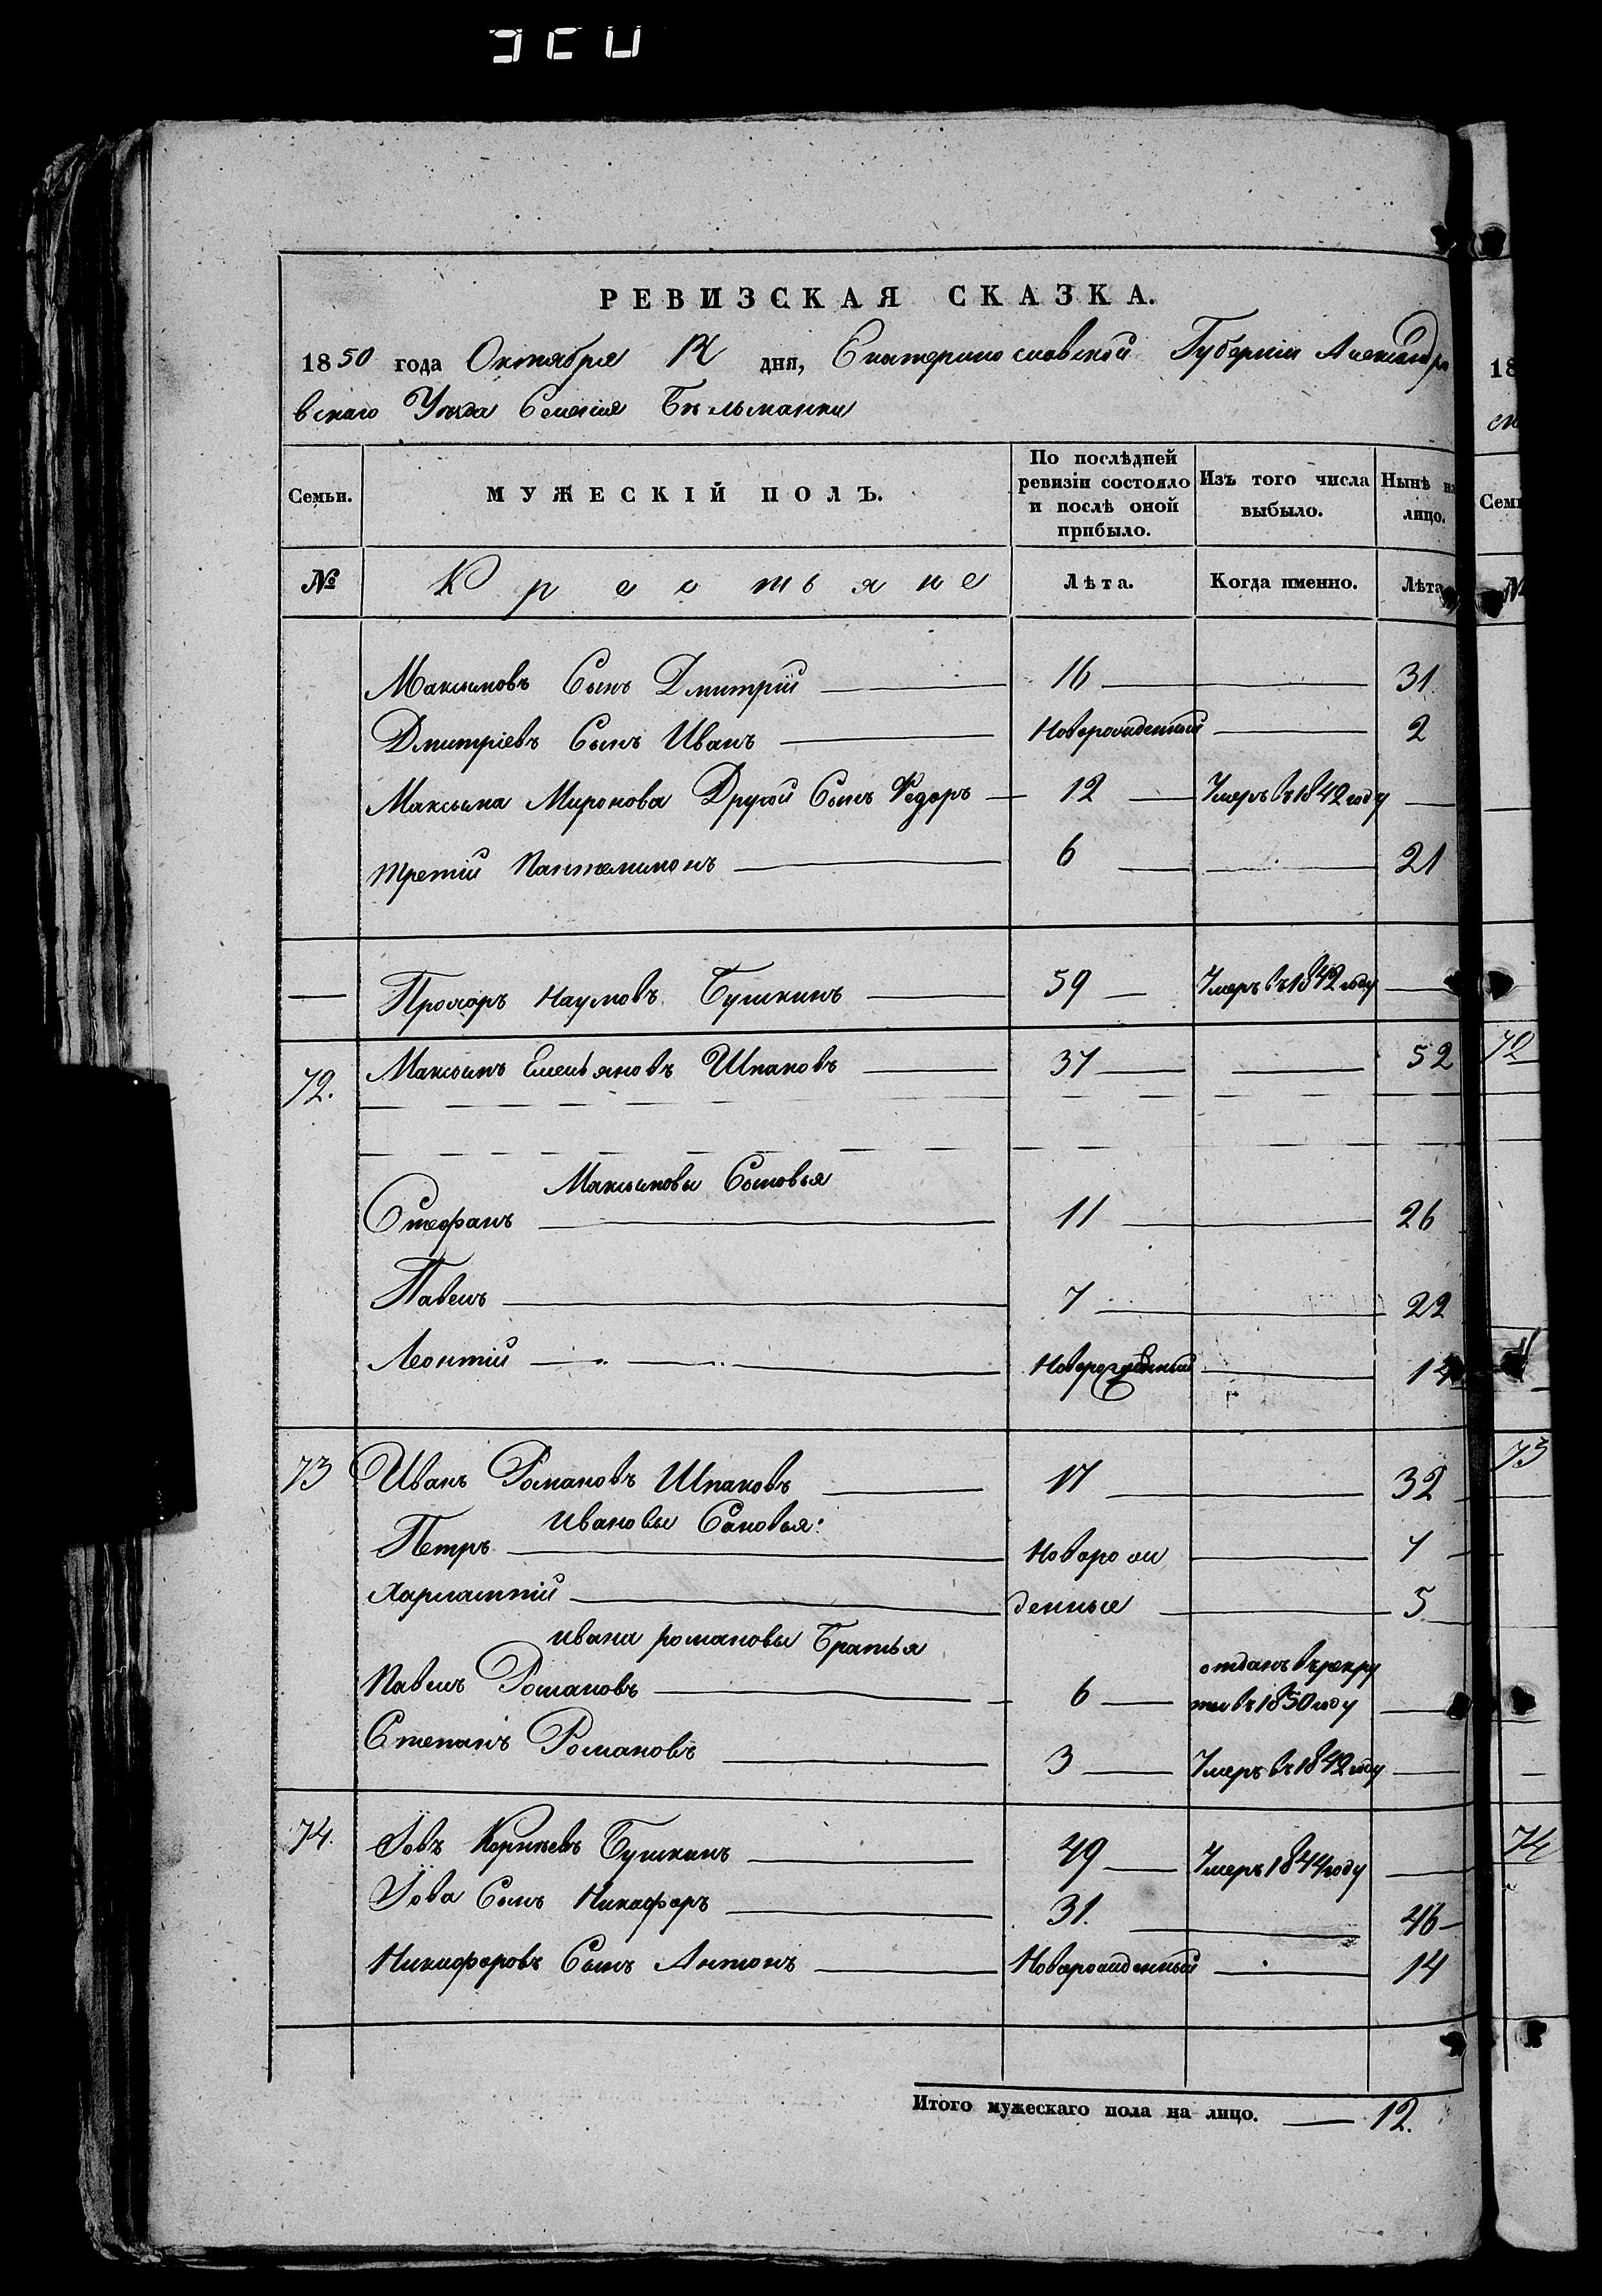 РЕВИЗСКАЯ СКАЗКА.
1850 года Октября дня, Екатеринославской Губерніи Александро
вскаго Уезда Селенія Бѣльманки
Семьи. МУЖЕСКІЙ ПОЛЪ. По послѣдней ревизіи состояло и послѣ оной прибыло. Изъ того числа выбыло. Нынѣ на лицо.
№ Крестьяне Лѣта. Когда именно. Лѣта
Максимовъ Сынъ Дмитрій 16 31
Дмитріевъ Сынъ Иванъ Новорожденный 2
Максима Миронова Другой Сынъ Федоръ 12 Умеръ въ 1842 году
третій Пантелимонъ 6 21
Прохоръ Наумовъ Бушкинъ 59 Умеръ въ 1842 году
72. Максимъ Емельяновъ Шпаковъ 37 52 72
Максимовы Сыновья
Стефанъ 11 26
Павелъ 7 22
Леонтій Новорожденный 14
73 Иванъ Романовъ Шпаковъ 17 32 73
Ивановы Сыновья:
Петръ Новорож 7
Харлампій денные 5
Ивана романовы Братья
Павелъ Романовъ 6 отданъ въ рекру
ты въ 1850 году
Степанъ Романовъ 3 Умеръ въ 1842 году
74. Іовъ Корнѣевъ Бушкинъ 49 Умеръ 1844 году 74
Іова Сынъ Никифоръ 31. 46
Никифоровъ Сынъ Антонъ Новорожденный 14
Итого мужескаго пола на лицо. 12.